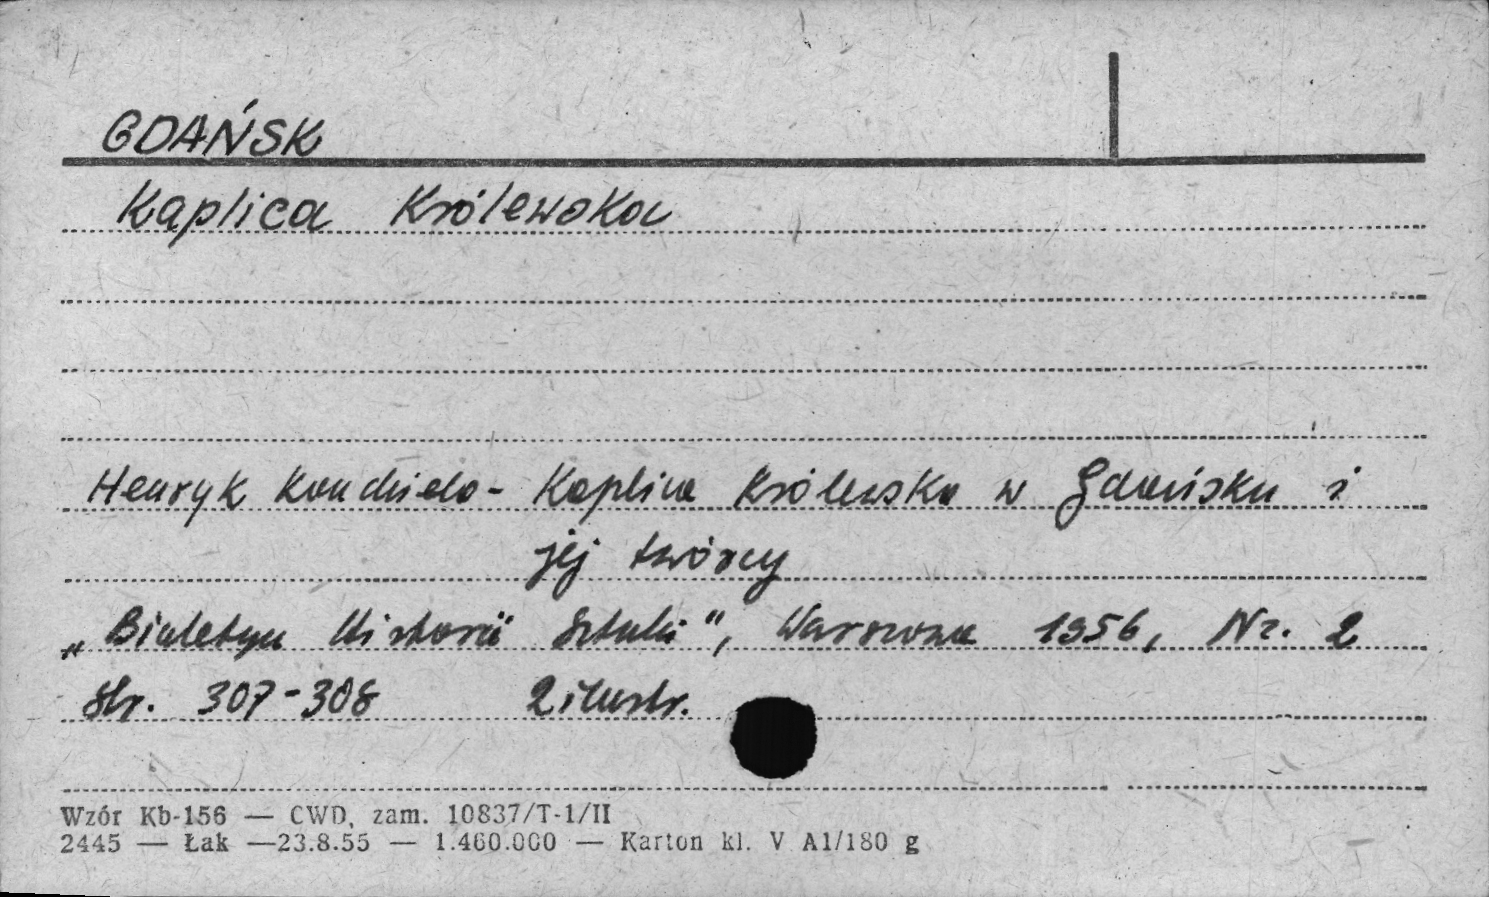 GDAŃSK
Kaplica Królewska
Henryk Kondziela - Kaplica Królewska w Gdańsku i
jej twórcy
„Biuletyn Historii Sztuki", Warszawa 1956, Nr. 2
Str. 307-308 2 ilustr.
Wzór Kb-156 — CWD, zam. 10837/T-1/II
2445 — Łak —23.8.55 — 1.460.000 — Karton kl. V A1/180 g